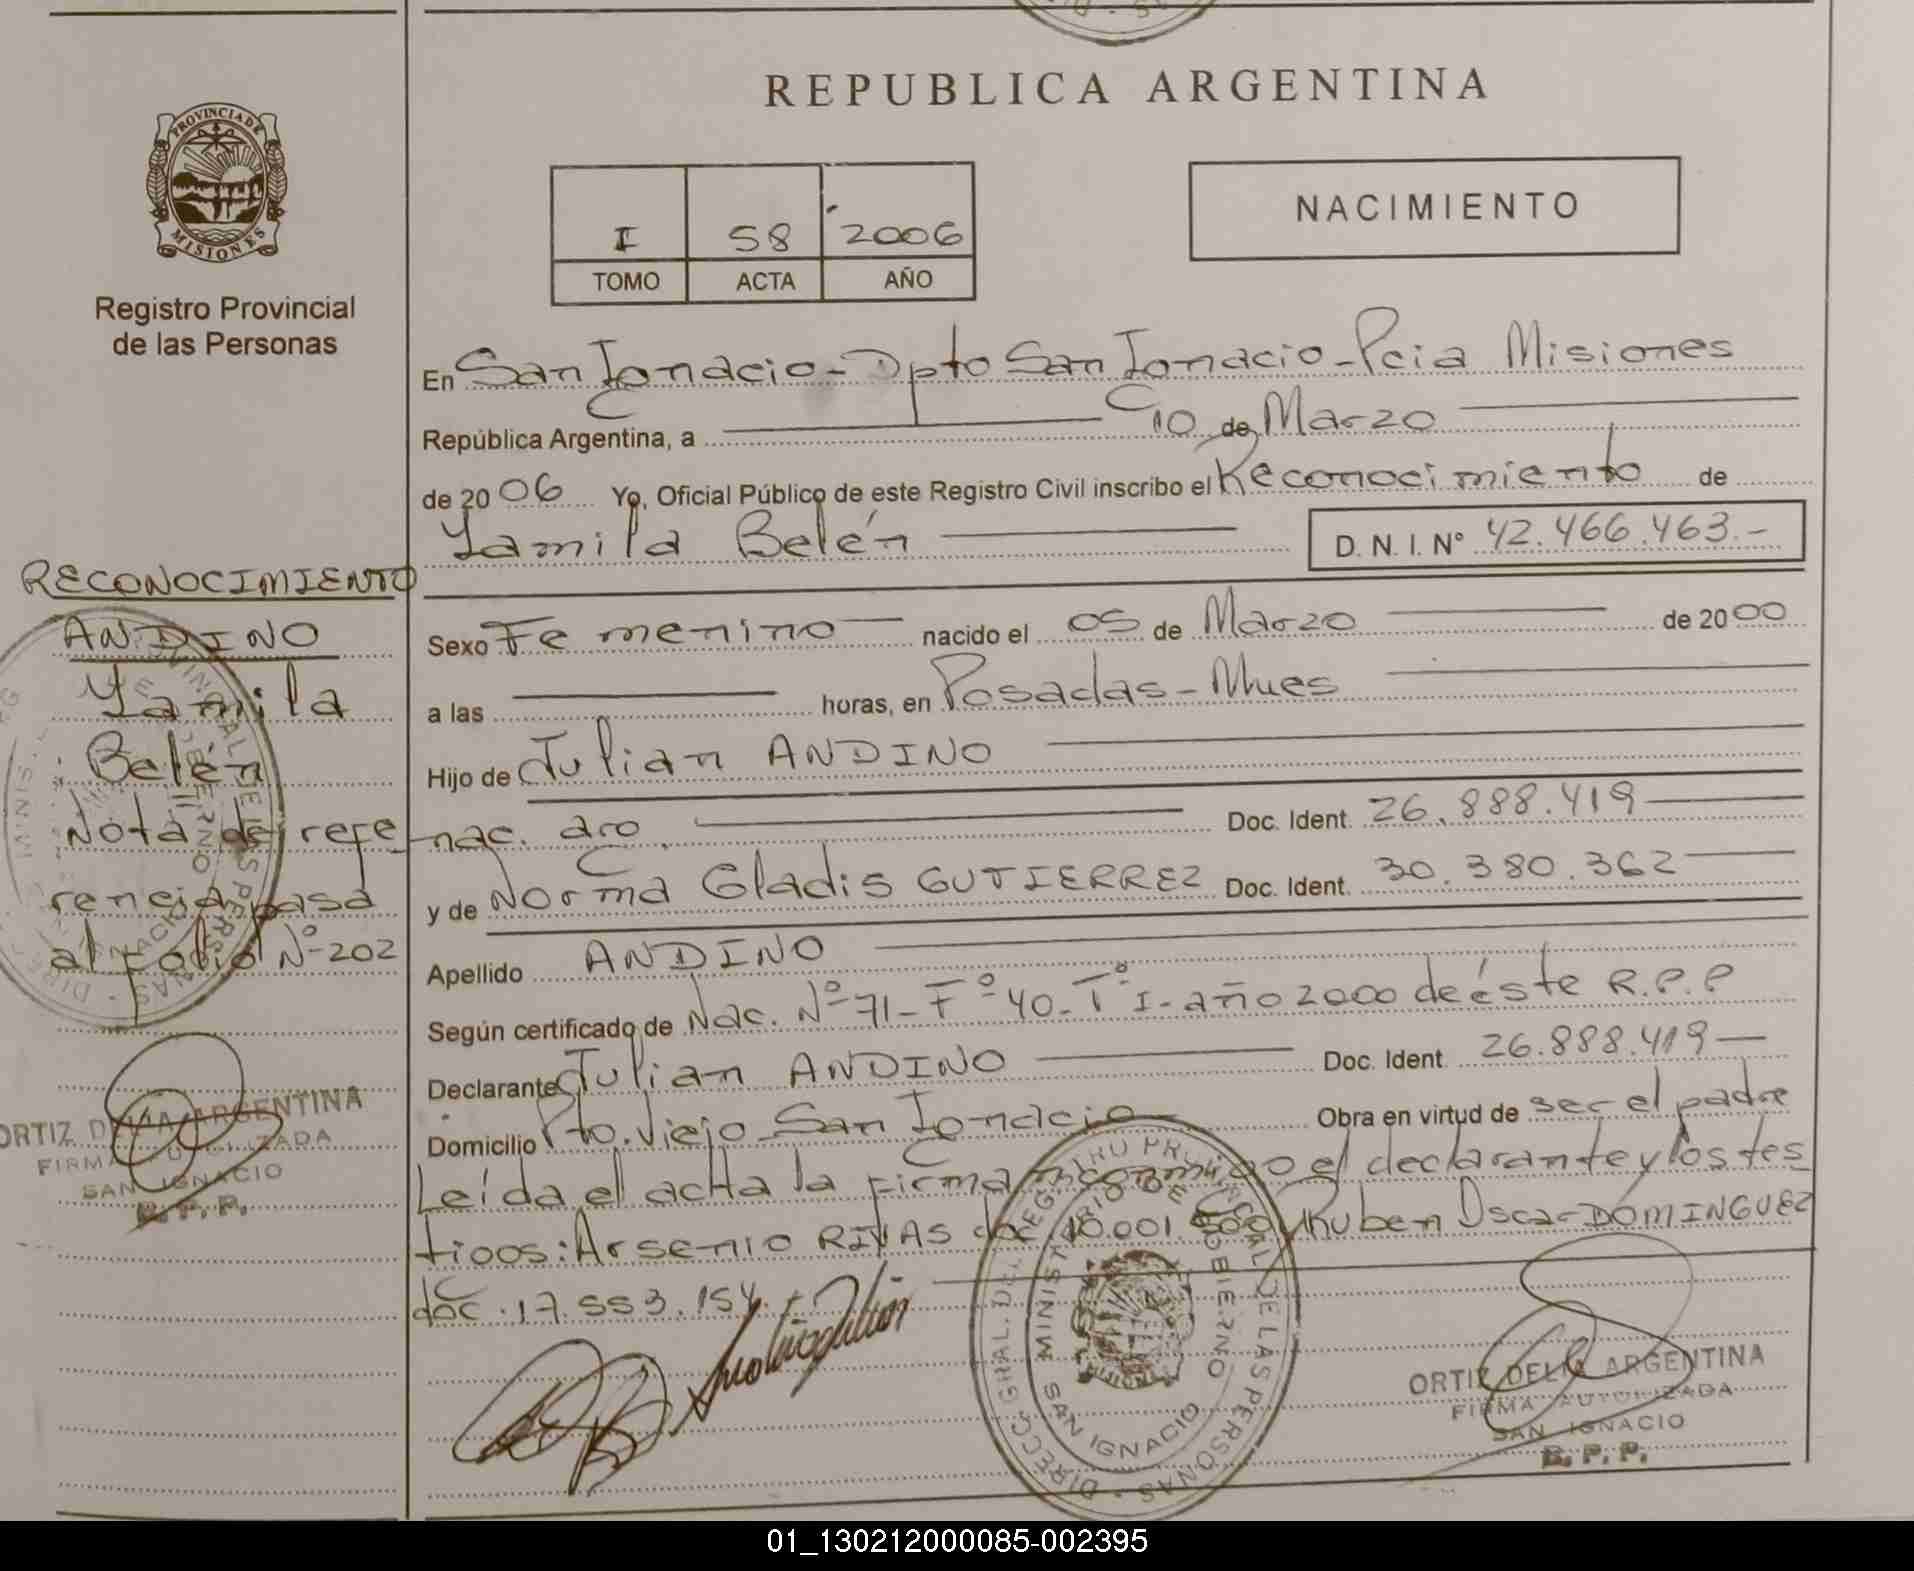 REPUBLICA ARGENTINA
PROVINCIA DE MISIONES
Registro Provincial
de las Personas
I 58 2006
TOMO ACTA AÑO
NACIMIENTO
En San Ignacio - Dpto San Ignacio - Pcia Misiones
República Argentina, a 10 de Marzo
de 2006 Yo, Oficial Público de este Registro Civil inscribo el Reconocimiento de
Yamila Belén D. N. I. Nº 42.466.463.-
Sexo Femenino nacido el 05 de Marzo de 2000
a las horas, en Posadas - Mnes
Hijo de Julian ANDINO
nac. arg. Doc. Ident. 26.888.419
y de Norma Gladis GUTIERREZ Doc. Ident. 30.380.362
Apellido ANDINO
Según certificado de Nac. Nº 71 - Fº 40 - Tº I - año 2000 de éste R.P.P
Declarante Julian ANDINO Doc. Ident. 26.888.419
Domicilio Pto. Viejo San Ignacio Obra en virtud de ser el padre
Leída el acta la firma conmigo el declarante y los tes
tigos: Arsenio RIVAS doc 10.001. y Ruben Oscar DOMINGUEZ
doc. 17.553.154
RECONOCIMIENTO
ANDINO
Yamila
Belén
Nota de refe
rencia pasa
al folio Nº 202
ORTIZ DELIA ARGENTINA
FIRMA AUTORIZADA
SAN IGNACIO
R. P. P.
DIRECC. GRAL. DEL REGISTRO PROVINCIAL DE LAS PERSONAS
MINISTERIO DE GOBIERNO
SAN IGNACIO
ORTIZ DELIA ARGENTINA
FIRMA AUTORIZADA
SAN IGNACIO
R. P. P.
01_130212000085-002395